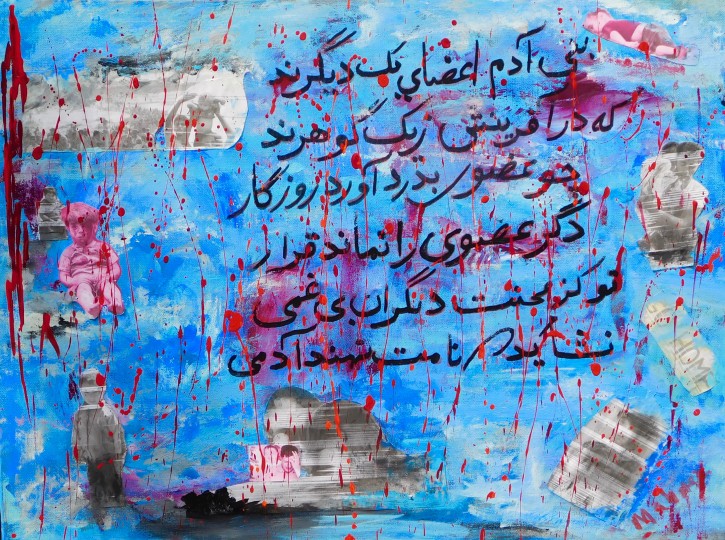 بنی آدم اعضای یک دیگرند
که در آفرینش زیک گوهرند
چو عضوی بدرد آورد روزگار
دگر عضوی را نماند قرار
تو کز محنت دیگران ی غمی
نشاید نامت نهند آدمی
HOM